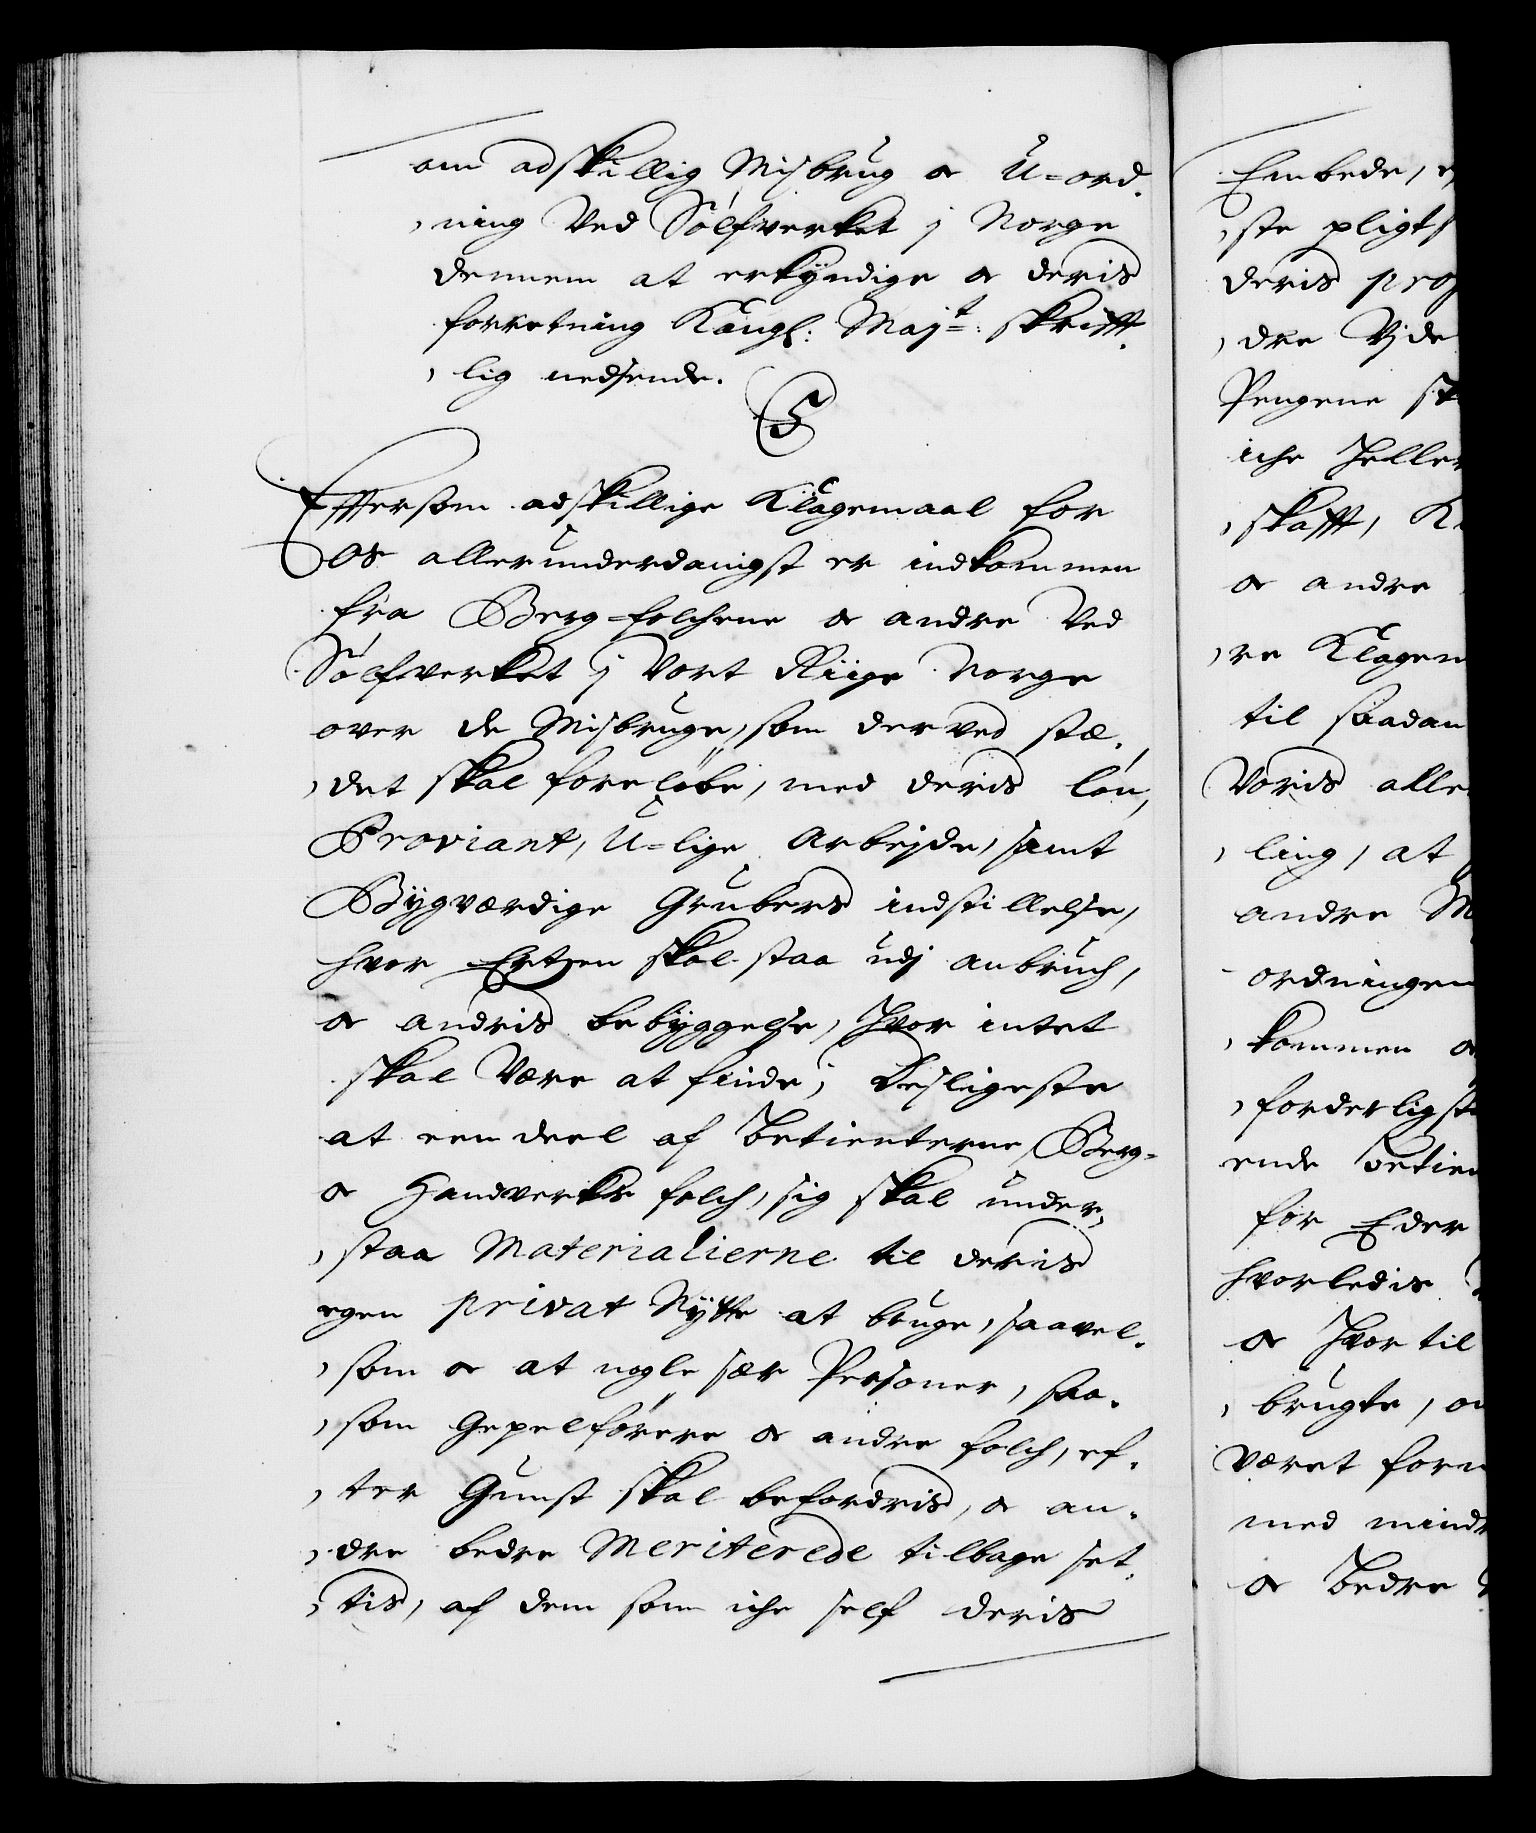 om adskillig Misbrug oc U=ord,
,ning Ved Sölfverket j Norge
dennem at erkyndige oc deris
forretning Kongl: Majt: skrifft,
,lig nedsende.
C5
Effersom adskillige Klagemaal for
Os allerunderdanigst er indkommen
fra Berg=folchene oc andre Ved
Sölfverket j Vort Riige Norge
over de Misbruge, som der ved stæ,
,det skal foreløbe, med deris løn,
Proviant, U=lige Arbejde, samt
Bygværdige Grubers indstillelse,
hvor Ertzen skal staa udj anbruch,
oc andris bebyggelse, hvor intet
skal være at finde; Desligeste
at een deel af Betienterne, Berg=
oc Handverks folch, sig skal under,
,staa Materialierne til deris
egen privat Nytte at bruge, saavel,
,som oc at nogle sær Personer, saa,
,som Gepelförere oc andre folch, ef,
,ter Gunst skal befordris, oc an,
,dre bedre Meriterede tilbage set,
,tis, af dem som iche self deris
Embede,
,ste pligts
deris
,dre Vjde
Pengene
iche heller
,skafft,
oc andre
,re Klagem
til saadan
Voris alle
,ling, at
andre
ordningen
,kommen
,forderligst
ende betien
for Eder
hvorledis
oc hvor til
,brugte,
været
med mindr
oc Bedre